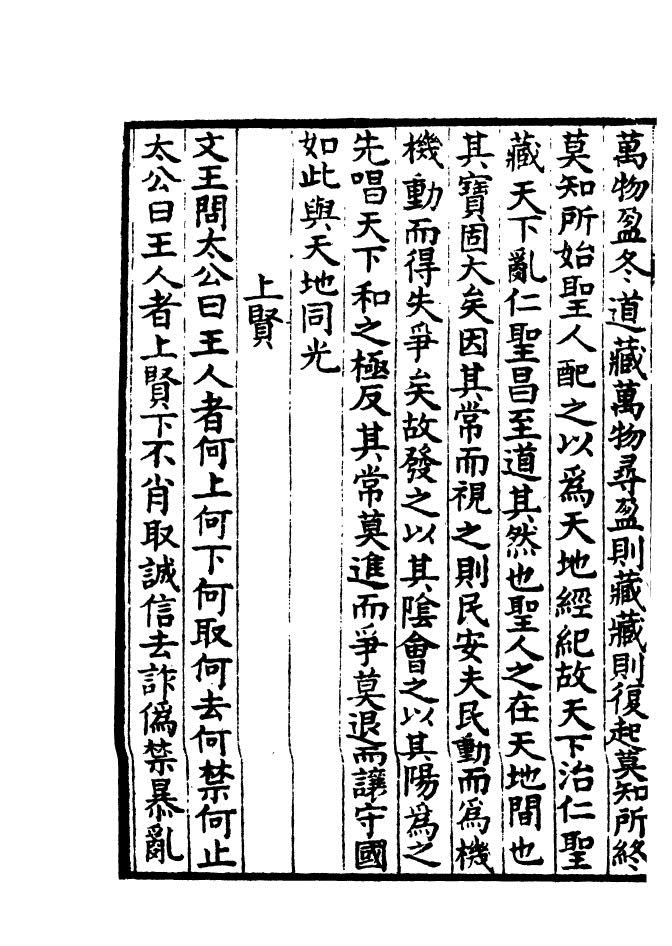 萬物盈冬道藏萬物尋盈則藏藏則復起莫知所終
莫知所始聖人配之以爲天地經紀故天下治仁聖
藏天下亂仁聖昌至道其然也聖人之在天地間也
其寶固大矣因其常而視之則民安夫民動而爲機
機動而得失爭矣故發之以其陰會之以其陽爲之
先唱天下和之極反其常莫進而爭莫退而讓守國
如此與天地同光
上賢
文王問太公曰王人者何上何下何取何去何禁何止
太公曰王人者上賢下不肖取誠信去詐僞禁暴亂